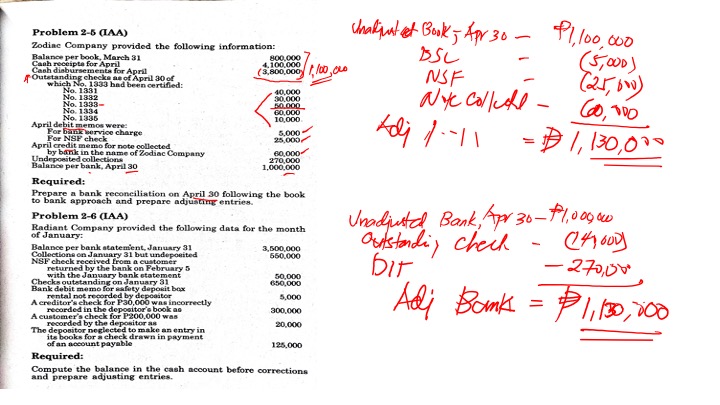 Problem 2-5 (IAA)
Zodiac Company provided the following information:
Balance per book, March 31 800,000
Cash receipts for April 4,100,000
Cash disbursements for April (3,800,000) 1,100,000
Outstanding checks as of April 30 of
which No. 1333 had been certified:
No. 1331 40,000
No. 1332 30,000
No. 1333 50,000
No. 1334 60,000
No. 1335 10,000
April debit memos were:
For bank service charge 5,000
For NSF check 25,000
April credit memo for note collected
by bank in the name of Zodiac Company 60,000
Undeposited collections 270,000
Balance per bank, April 30 1,000,000
Required:
Prepare a bank reconciliation on April 30 following the book
to bank approach and prepare adjusting entries.
Problem 2-6 (IAA)
Radiant Company provided the following data for the month
of January:
Balance per bank statement, January 31 3,500,000
Collections on January 31 but undeposited 550,000
NSF check received from a customer
returned by the bank on February 5
with the January bank statement 50,000
Checks outstanding on January 31 650,000
Bank debit memo for safety deposit box
rental not recorded by depositor 5,000
A creditor's check for P30,000 was incorrectly
recorded in the depositor's book as 300,000
A customer's check for P200,000 was
recorded by the depositor as 20,000
The depositor neglected to make an entry in
its books for a check drawn in payment
of an account payable 125,000
Required:
Compute the balance in the cash account before corrections
and prepare adjusting entries.
Unadjusted Book, Apr 30 — ₱1,100,000
BSC - (5,000)
NSF - (25,000)
Note Collected - 60,000
Adj = ₱ 1,130,000
Unadjusted Bank, Apr 30 — ₱1,000,000
Outstanding check - (140,000)
DIT — 270,000
Adj Bank = ₱1,130,000